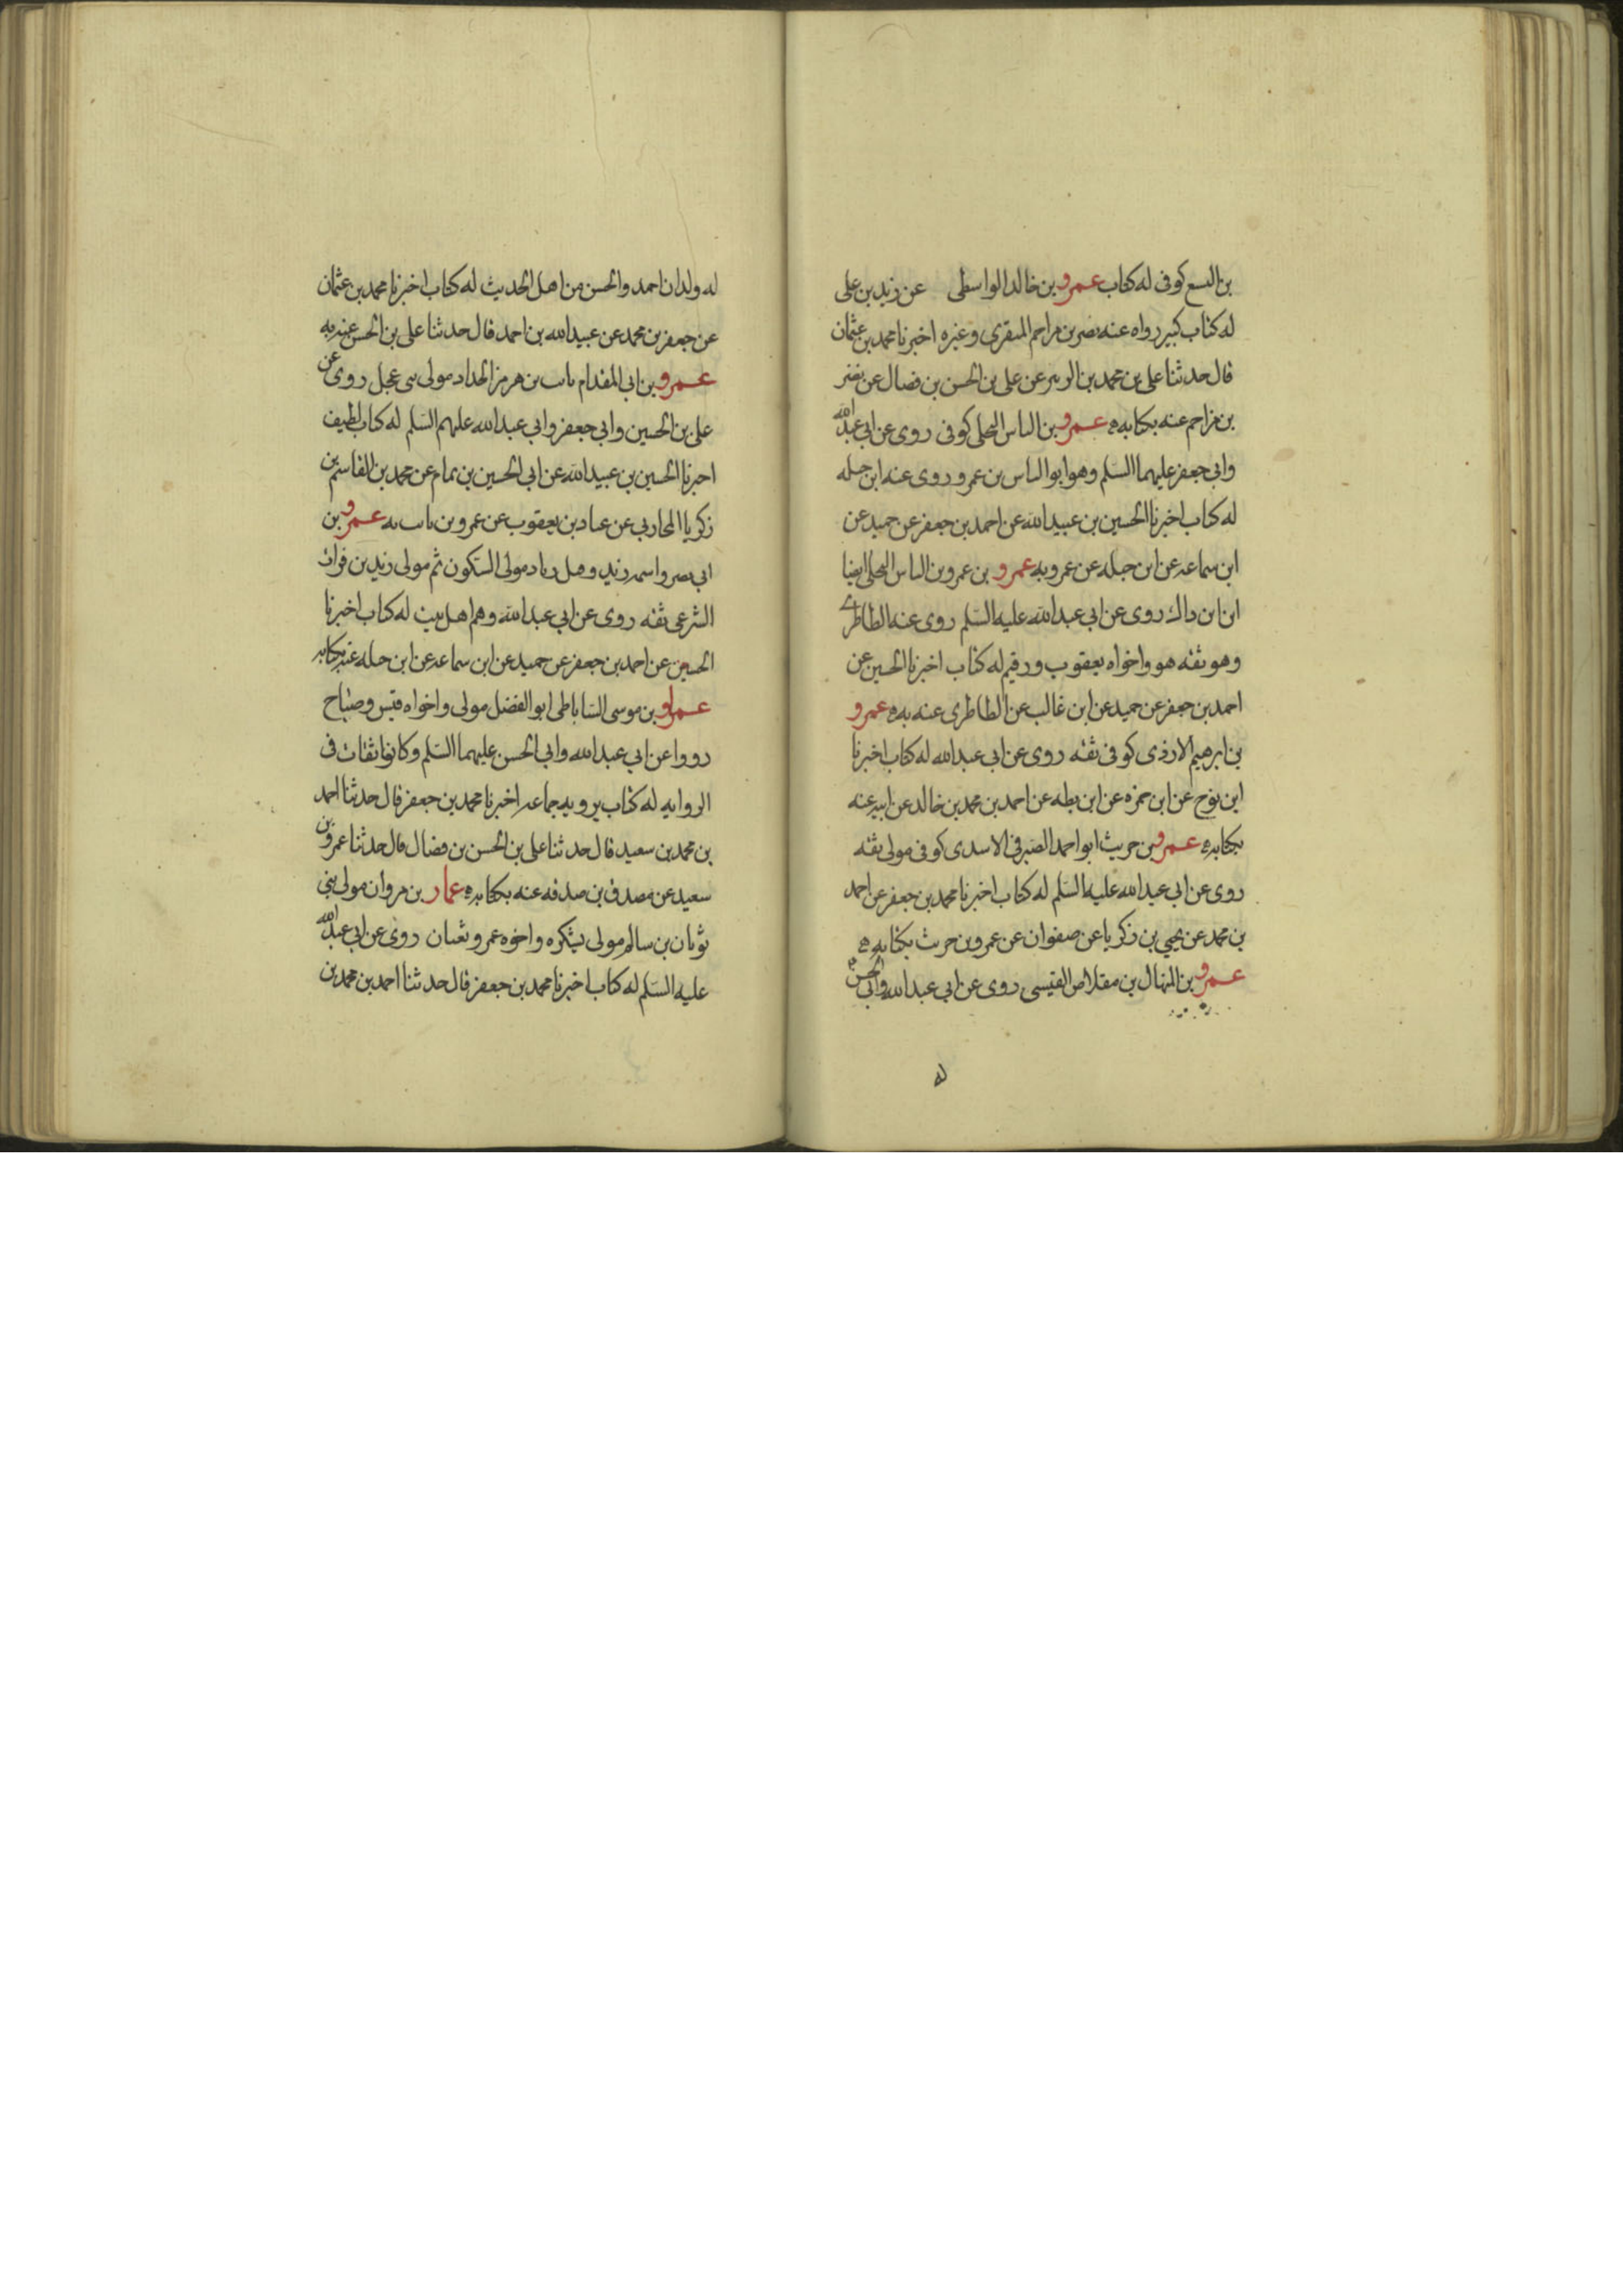 بن اليسع كوفى له كتاب عمرو بن خالد الواسطى عن زيد بن على
له كتاب كبير رواه عنه نصر بن مزاحم المنقرى وغيره اخبرنا محمد بن عثمان
قال حدثنا على بن محمد بن الزبير عن على بن الحسن بن فضال عن نصر
بن مزاحم عنه بكتابه عمرو بن الياس البجلى كوفى روى عن ابى عبد الله
وابى جعفر عليهما السلم وهو ابو الياس بن عمرو روى عنه ابن جبله
له كتاب اخبرنا الحسين بن عبيد الله عن احمد بن جعفر عن حميد عن
ابن سماعه عن ابن جبله عن عمرو به عمرو بن عمرو بن الياس البجلى ايضا
ابن ابن ذاك روى عن ابى عبد الله عليه السلم روى عنه الطاطرى
وهو ثقه هو واخواه يعقوب ورقيم له كتاب اخبرنا الحسين عن
احمد بن جعفر عن حميد عن ابن غالب عن الطاطرى عنه به عمرو
بن ابرهيم الازدى كوفى ثقه روى عن ابى عبد الله له كتاب اخبرنا
ابن نوح عن ابن حمزه عن ابن بطه عن احمد بن محمد بن خالد عن ابيه عنه
بكتابه عمرو بن حريث ابو احمد الصيرفى الاسدى كوفى مولى ثقه
روى عن ابى عبد الله عليه السلم له كتاب اخبرنا محمد بن جعفر عن احمد
بن محمد عن يحيى بن زكريا عن صفوان عن عمرو بن حريث بكتابه
عمرو بن المنهال بن مقلاص القيسى روى عن ابى عبد الله وابى الحسن
له
له ولدان احمد والحسن من اهل الحديث له كتاب اخبرنا محمد بن عثمان
عن جعفر بن محمد عن عبيد الله بن احمد قال حدثنا على بن الحسن عنه به
عمرو بن ابى المقدام ثابت بن هرمز الحداد مولى بنى عجل روى عن
على بن الحسين وابى جعفر وابى عبد الله عليهم السلم له كتاب لطيف
اخبرنا الحسين بن عبيد الله عن ابى الحسين بن تمام عن محمد بن القاسم بن
زكريا المحاربى عن عباد بن يعقوب عن عمرو بن ثابت به عمرو بن
ابى نصر واسمه زيد وقيل زياد مولى السكون ثم مولى زيد بن فرات
الشرعبى ثقه روى عن ابى عبد الله وهم اهل بيت له كتاب اخبرنا
الحسين عن احمد بن جعفر عن حميد عن ابن سماعه عن ابن جبله عنه بكتابه
عمار بن موسى الساباطى ابو الفضل مولى واخواه قيس وصباح
رووا عن ابى عبد الله وابى الحسن عليهما السلم وكانوا ثقات فى
الروايه له كتاب يرويه جماعه اخبرنا محمد بن جعفر قال حدثنا احمد
بن محمد بن سعيد قال حدثنا على بن الحسن بن فضال قال حدثنا عمرو بن
سعيد عن مصدق بن صدقه عنه بكتابه عمار بن مروان مولى بنى
ثوبان بن سالم مولى يشكره واخوه عمرو ثقتان روى عن ابى عبد الله
عليه السلم له كتاب اخبرنا محمد بن جعفر قال حدثنا احمد بن محمد بن